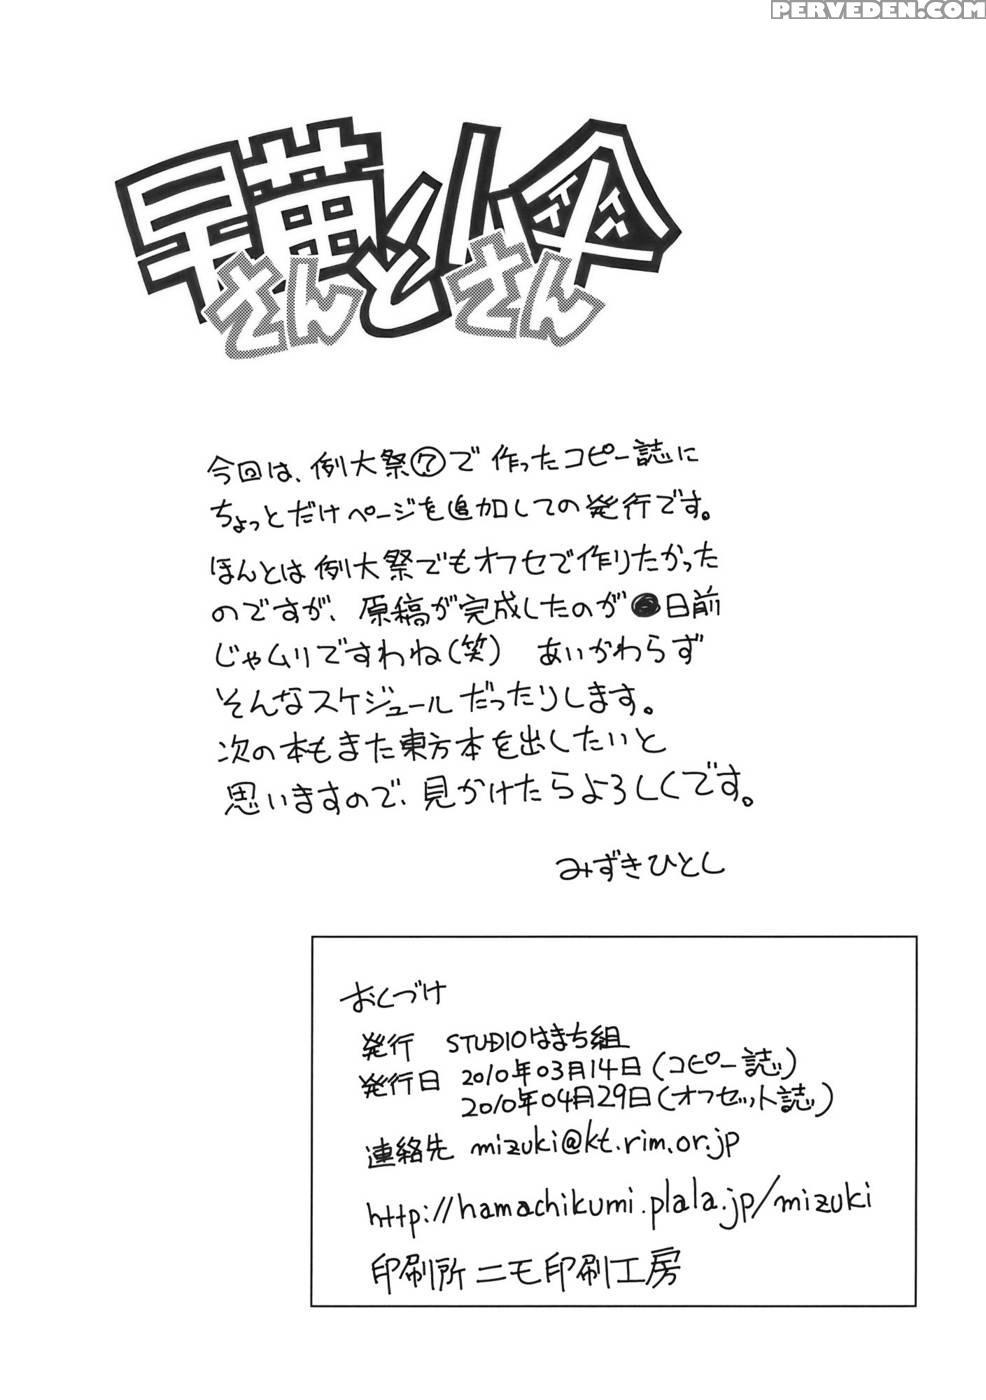 PERVEDEN.COM
早苗さんと小傘さん
今回は、例大祭⑦で作ったコピー誌に
ちょっとだけページを追加しての発行です。
ほんとは例大祭でもオフセで作りたかった
のですが、原稿が完成したのが●日前
じゃムリですわね(笑) あいかわらず
そんなスケジュールだったりします。
次の本もまた東方本を出したいと
思いますので、見かけたらよろしくです。
みずきひとし
おくづけ
発行 STUDIOはまち組
発行日 2010年03月14日(コピー誌)
2010年04月29日(オフセット誌)
連絡先 mizuki@kt.rim.or.jp
http://hamachikumi.plala.jp/mizuki
印刷所 ニモ印刷工房